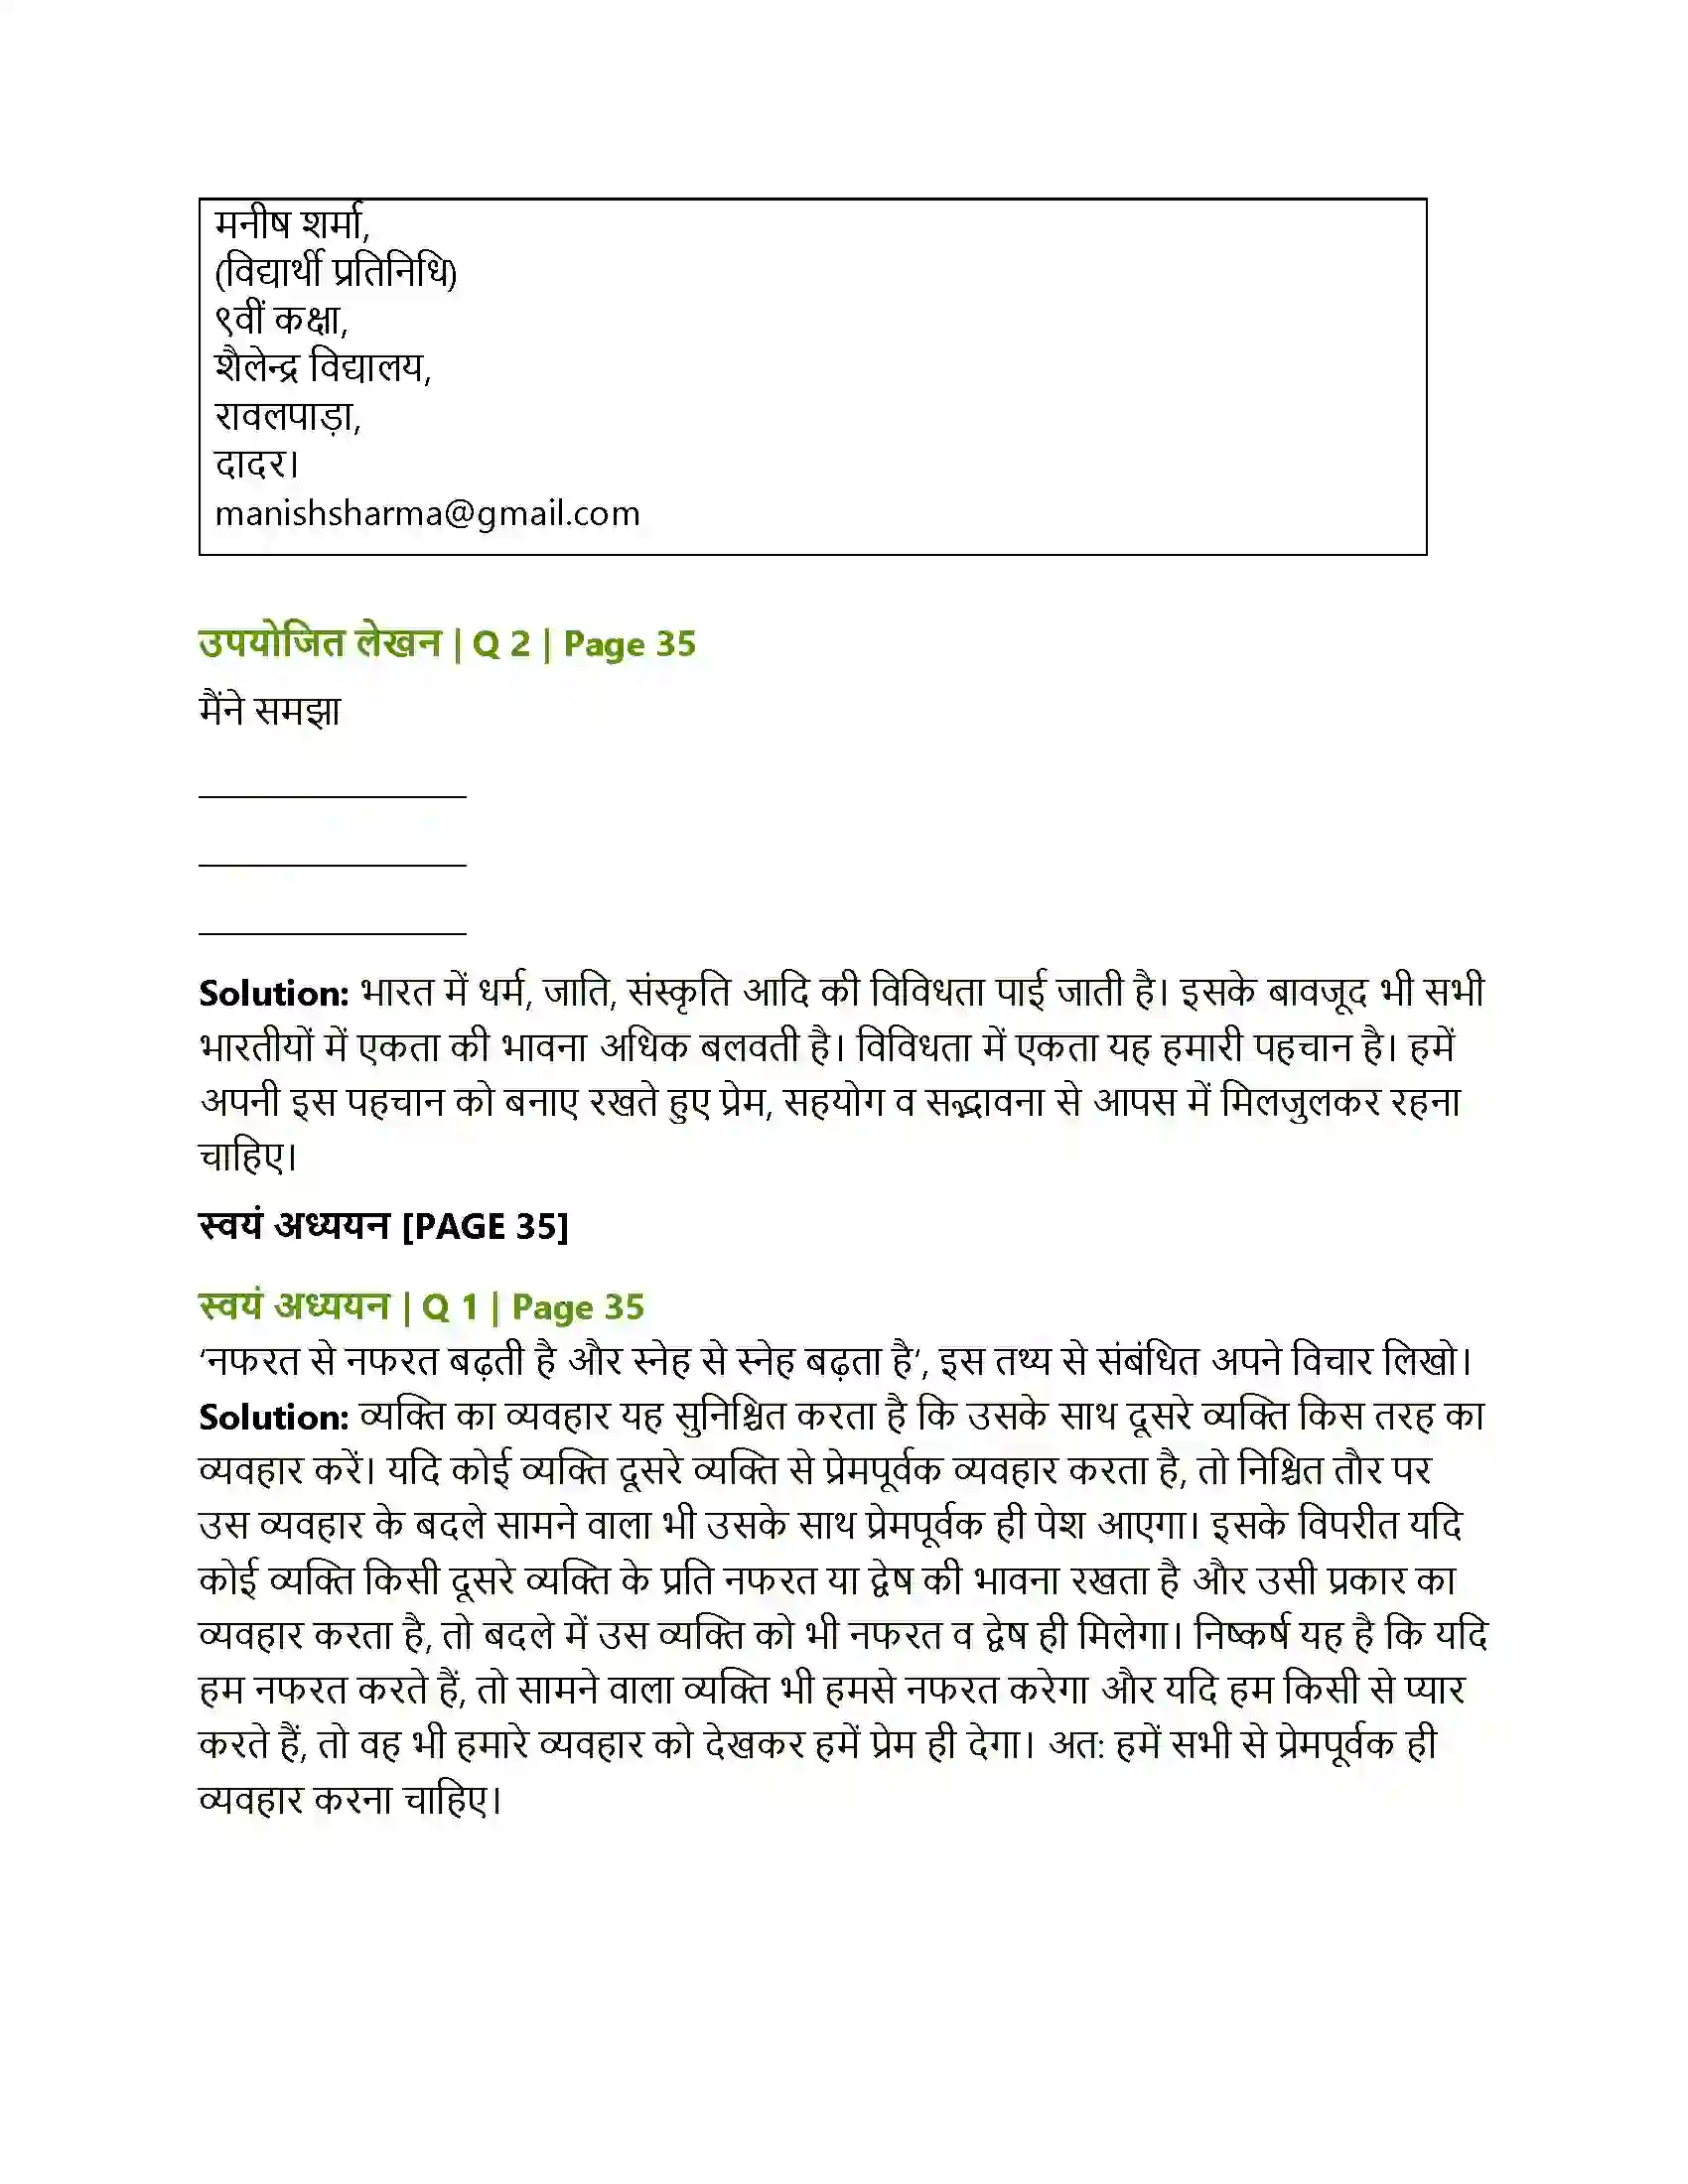 मनीष शर्मा,
(विद्यार्थी प्रतिनिधि)
९वीं कक्षा,
शैलेन्द्र विद्यालय,
रावलपाड़ा,
दादर।
manishsharma@gmail.com
उपयोजित लेखन | Q 2 | Page 35
मैंने समझा
______________
______________
______________
Solution: भारत में धर्म, जाति, संस्कृति आदि की विविधता पाई जाती है। इसके बावजूद भी सभी
भारतीयों में एकता की भावना अधिक बलवती है। विविधता में एकता यह हमारी पहचान है। हमें
अपनी इस पहचान को बनाए रखते हुए प्रेम, सहयोग व सद्भावना से आपस में मिलजुलकर रहना
चाहिए।
स्वयं अध्ययन [PAGE 35]
स्वयं अध्ययन | Q 1 | Page 35
‘नफरत से नफरत बढ़ती है और स्नेह से स्नेह बढ़ता है’, इस तथ्य से संबंधित अपने विचार लिखो।
Solution: व्यक्ति का व्यवहार यह सुनिश्चित करता है कि उसके साथ दूसरे व्यक्ति किस तरह का
व्यवहार करें। यदि कोई व्यक्ति दूसरे व्यक्ति से प्रेमपूर्वक व्यवहार करता है, तो निश्चित तौर पर
उस व्यवहार के बदले सामने वाला भी उसके साथ प्रेमपूर्वक ही पेश आएगा। इसके विपरीत यदि
कोई व्यक्ति किसी दूसरे व्यक्ति के प्रति नफरत या द्वेष की भावना रखता है और उसी प्रकार का
व्यवहार करता है, तो बदले में उस व्यक्ति को भी नफरत व द्वेष ही मिलेगा। निष्कर्ष यह है कि यदि
हम नफरत करते हैं, तो सामने वाला व्यक्ति भी हमसे नफरत करेगा और यदि हम किसी से प्यार
करते हैं, तो वह भी हमारे व्यवहार को देखकर हमें प्रेम ही देगा। अत: हमें सभी से प्रेमपूर्वक ही
व्यवहार करना चाहिए।